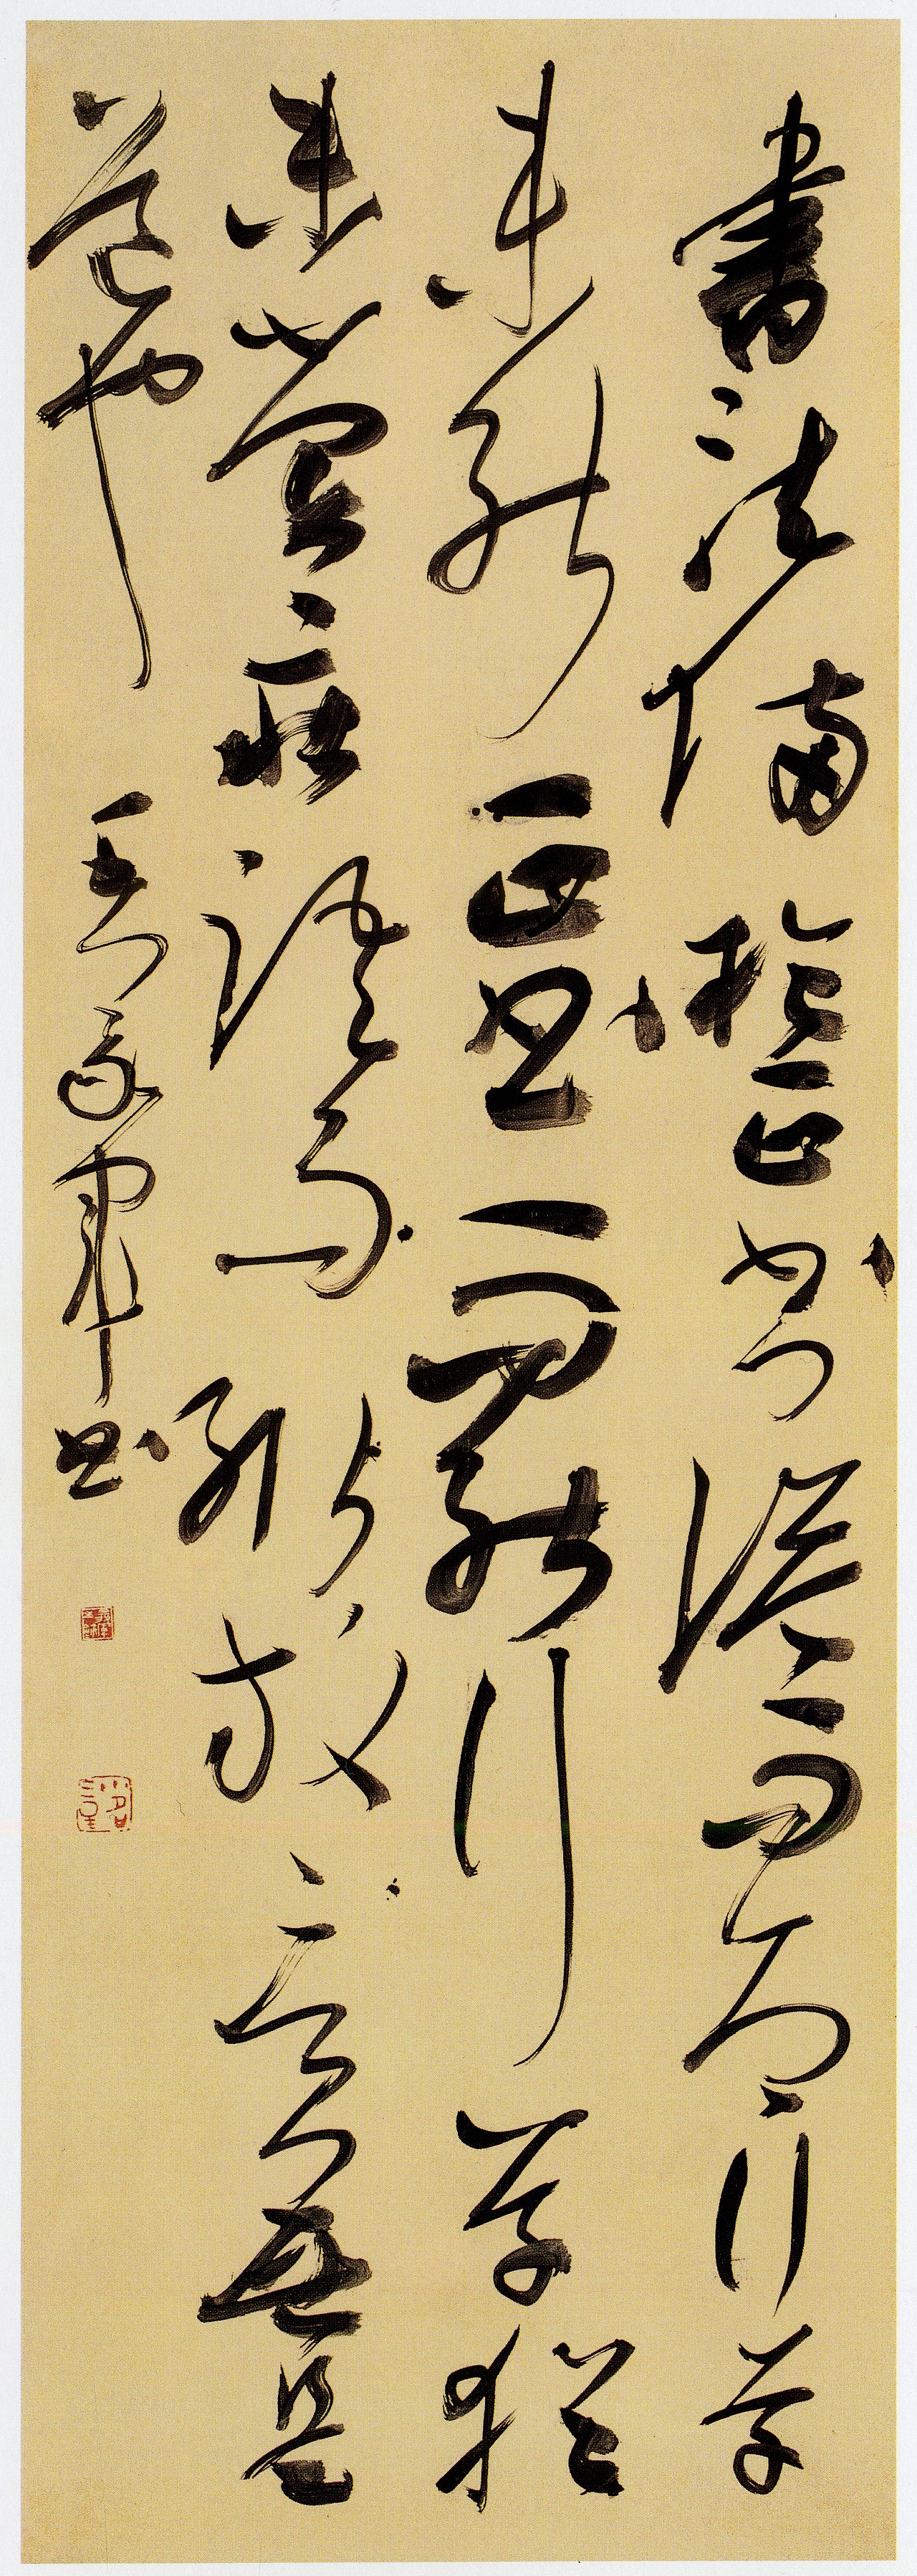 書法備於正書溢而為行草
未能正書而能行草猶
未嘗莊語而輒放言無是
道也 軍書